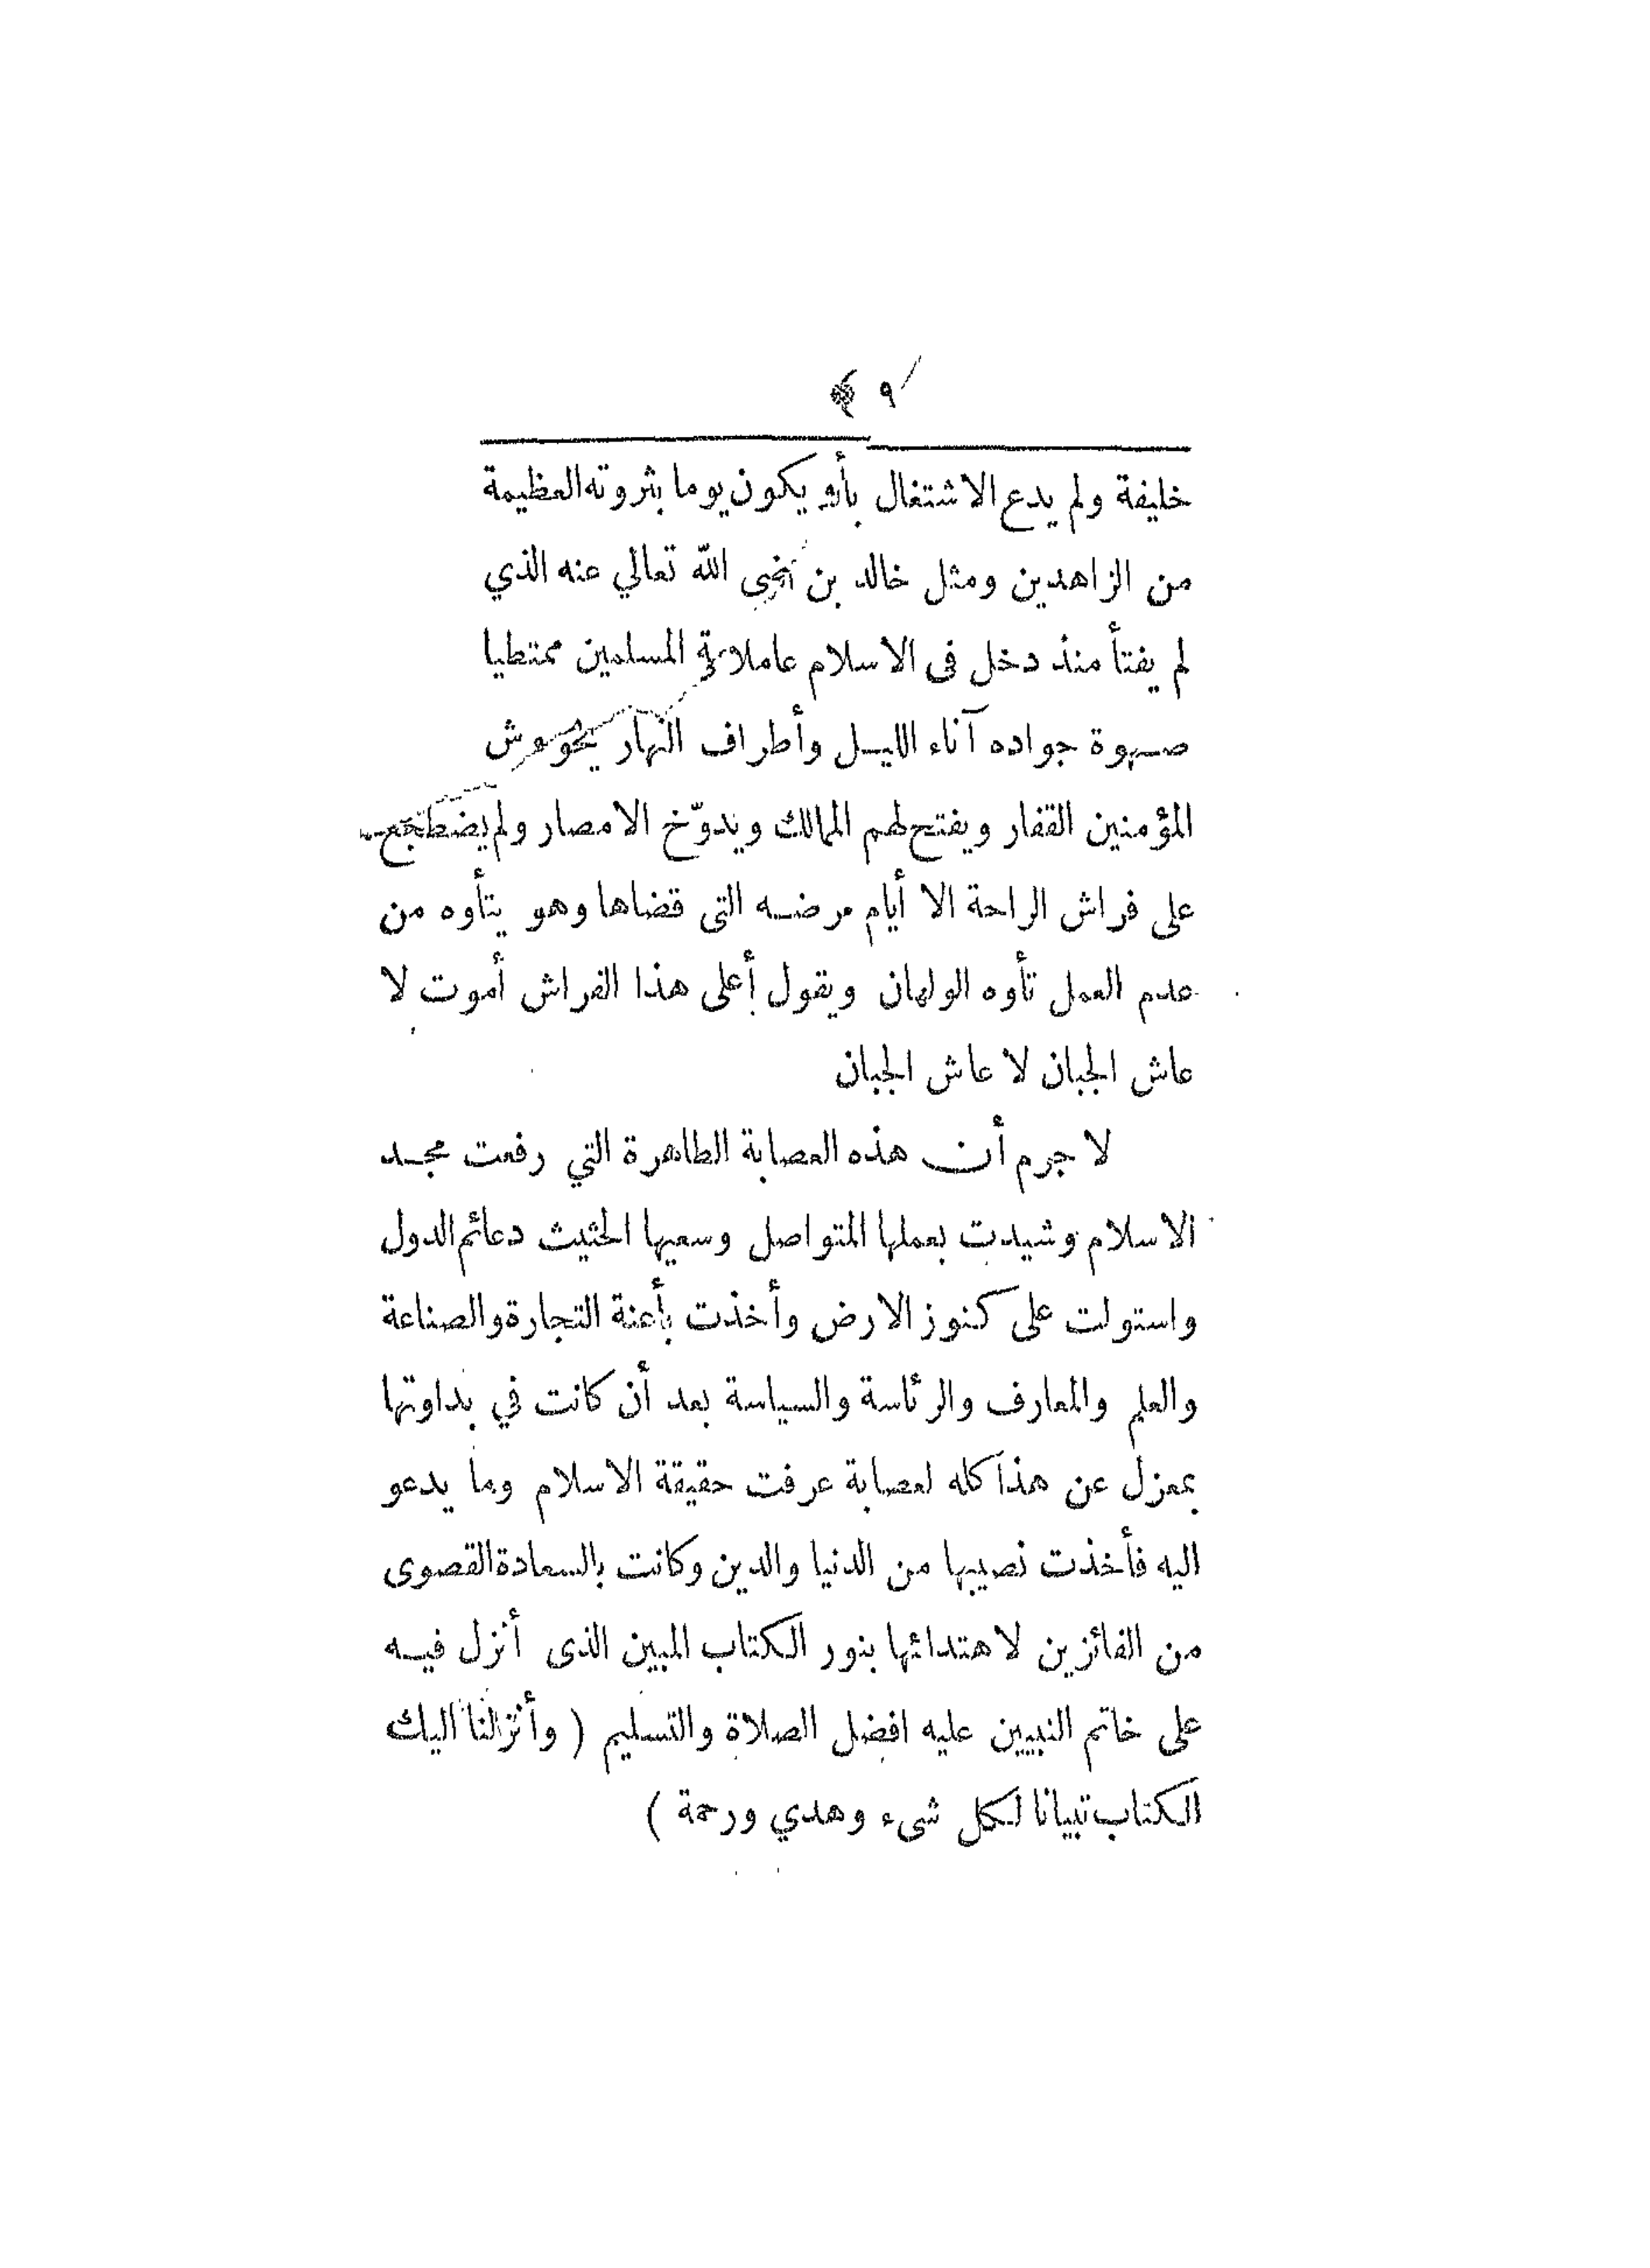 ٩
خليفة ولم يدع الاشتغال يكون يوما بثروته العظيمة
من الزاهدين ومثل خالد بن الله تعالي عنه الذي
لم يفتأ منذ دخل فى الاسلام عاملا المسلمين ممتطيا
صهوة جواده آناء الليل وأطراف النهار
المؤمنين القفار ويفتح لهم الممالك ويدوّخ الامصار ولم يضطجع
على فراش الراحة الا أيام مرضه التى قضاها وهو يتأوه من
عدم العمل تأوه الولهان ويقول أعلى هذا الفراش أموت لا
عاش الجبان لا عاش الجبان
لا جرم أن هذه العصابة الطاهرة التي رفعت مجد
الاسلام وشيدت بعملها المتواصل وسعيها الحثيث دعائم الدول
واستولت على كنوز الارض وأخذت بأعنة التجارة والصناعة
والعلم والمعارف والرئاسة والسياسة بعد أن كانت في بداوتها
بمعزل عن هذا كله لعصابة عرفت حقيقة الاسلام وما يدعو
اليه فأخذت نصيبها من الدنيا والدين وكانت بالسعادة القصوى
من الفائزين لاهتدائها بنور الكتاب المبين الذى أنزل فيه
على خاتم النبيين عليه افضل الصلاة والتسليم ( وأنزلنا اليك
الكتاب تبيانا لكل شىء وهدي ورحمة )